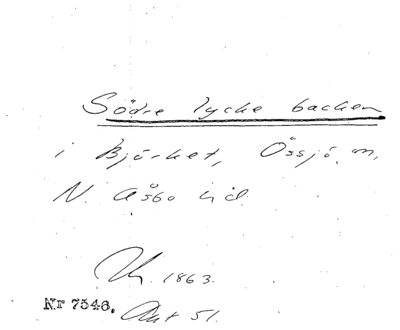 Södre lycke backen
i Björket, Össjö m,
N. Åsbo hd.
1863.
Nr 7546. Akt 51.